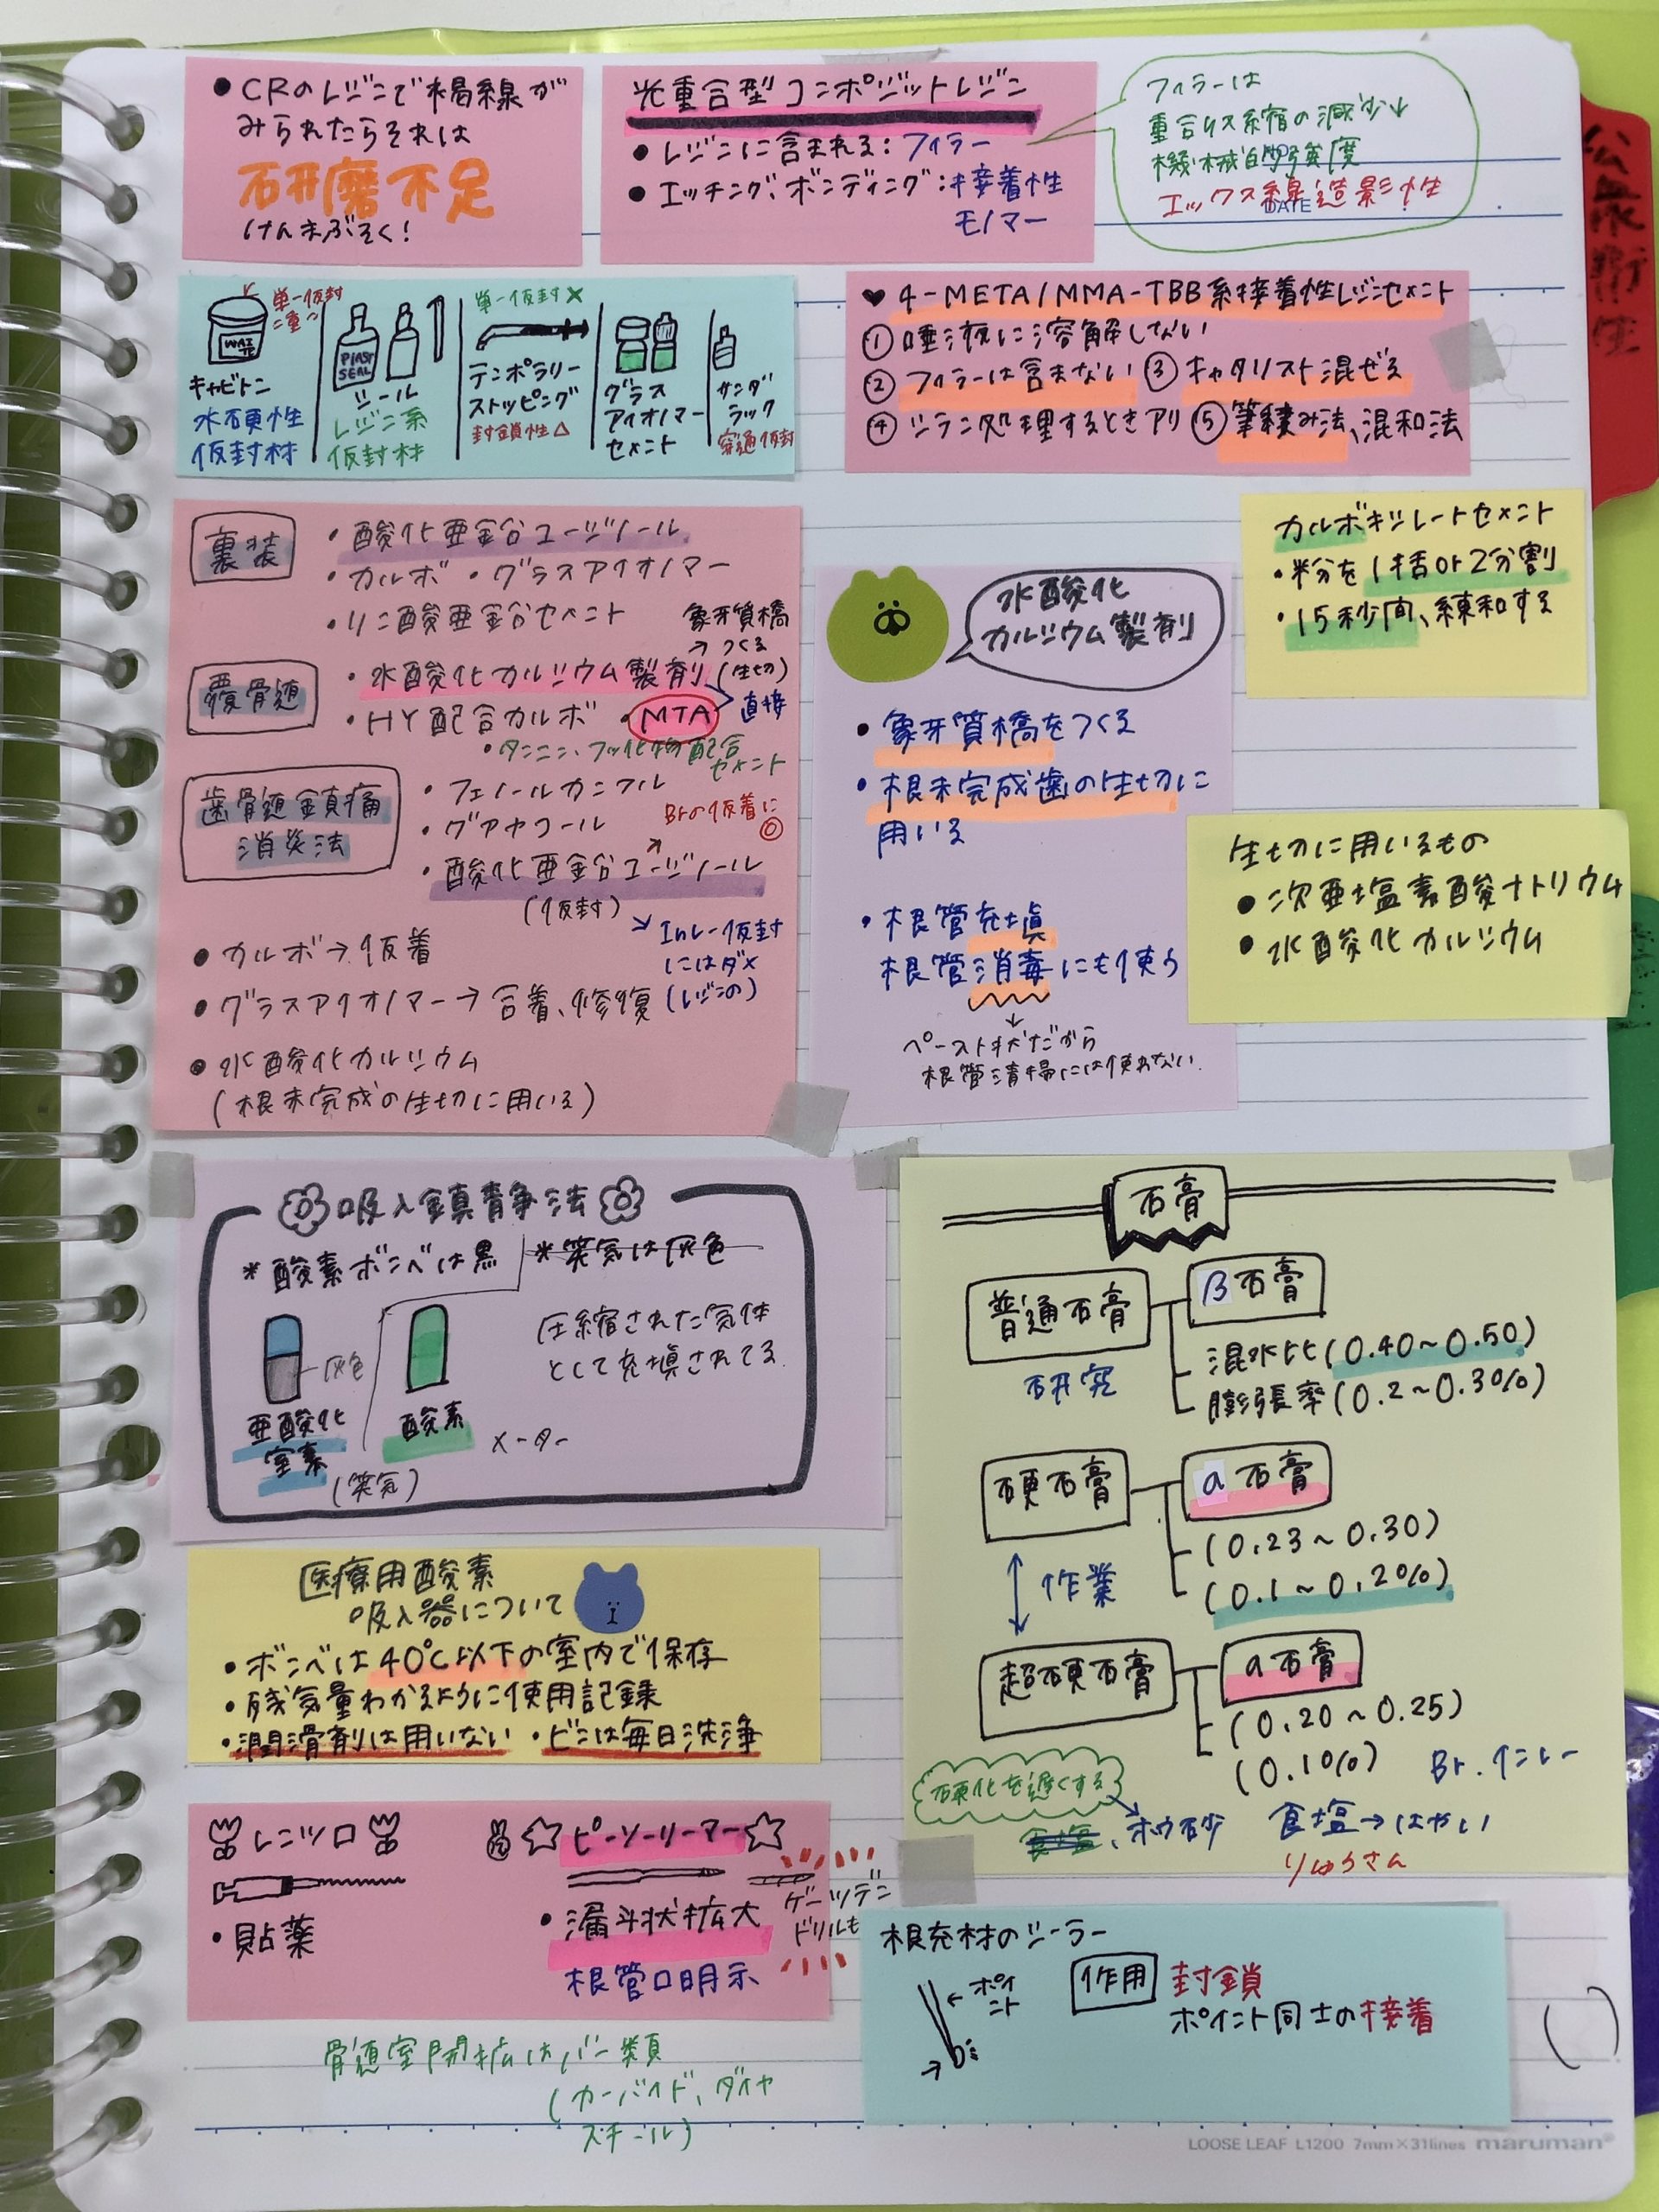 ●CRのレジンで褐線が
みられたらそれは
研磨不足
けんまぶそく!
光重合型コンポジットレジン
●レジンに含まれる:フィラー
●エッチング、ボンディング:接着性
モノマー
フィラーは
重合収縮の減少↓
機械的強度
エックス線造影性
DATE
公衆衛生
単一仮封
二重〃
WAITE
キャビトン
水硬性
仮封材
PLAST
SEAL
シール
レジン系
仮封材
単一仮封×
テンポラリー
ストッピング
封鎖性△
グラス
アイオノマー
セメント
サンダ
ラック
穿通仮封
♥4-META/MMA-TBB系接着性レジンセメント
①唾液に溶解しない
②フィラーは含まない ③キャタリスト混ぜる
④シラン処理するときアリ ⑤筆積み法、混和法
裏装
・酸化亜鉛ユージノール
・カルボ ・グラスアイオノマー
・リン酸亜鉛セメント
覆髄
象牙質橋
→つくる
(生切)
・水酸化カルシウム製剤
直接
・HY配合カルボ ・MTA
・タンニン、フッ化物配合
セメント
歯髄鎮痛
消炎法
・フェノールカンフル
・グアヤコール
Brの仮着に
◎
・酸化亜鉛ユージノール
(仮封)
↘Inレー仮封
にはダメ
(レジンの)
●カルボ→仮着
●グラスアイオノマー→合着、修復
●水酸化カルシウム
(根未完成の生切に用いる)
水酸化
カルシウム製剤
・象牙質橋をつくる
・根未完成歯の生切に
用いる
・根管充填
根管消毒にも使う
↓
ペースト状だから
根管清掃には使わない
カルボキシレートセメント
・粉を1括or2分割
・15秒間、練和する
生切に用いるもの
●次亜塩素酸ナトリウム
●水酸化カルシウム
吸入鎮静法
*酸素ボンベは黒
*笑気は灰色
灰色
亜酸化
窒素
(笑気)
酸素
圧縮された気体
として充填されてる
メーター
医療用酸素
吸入器について
・ボンベは40℃以下の室内で保存
・残気量わかるように使用記録
・潤滑剤は用いない ・ビンは毎日洗浄
石膏
普通石膏
β石膏
研究
混水比(0.40~0.50)
膨張率(0.2~0.3%)
硬石膏
α石膏
(0.23~0.30)
(0.1~0.2%)
↕作業
超硬石膏
α石膏
(0.20~0.25)
(0.1%)
Br.インレー
硬化を遅くする
食塩、ホウ砂
食塩→はやい
りゅうさん
レンツロ
・貼薬
☆ピーソーリーマー☆
・漏斗状拡大
根管口明示
ゲーツデン
ドリルも
髄室開拡はバー類
(カーバイド、ダイヤ
スチール)
根充材のシーラー
←ポイ
ント
作用
封鎖
ポイント同士の接着
LOOSE LEAF L1200 7mm×31lines maruman®